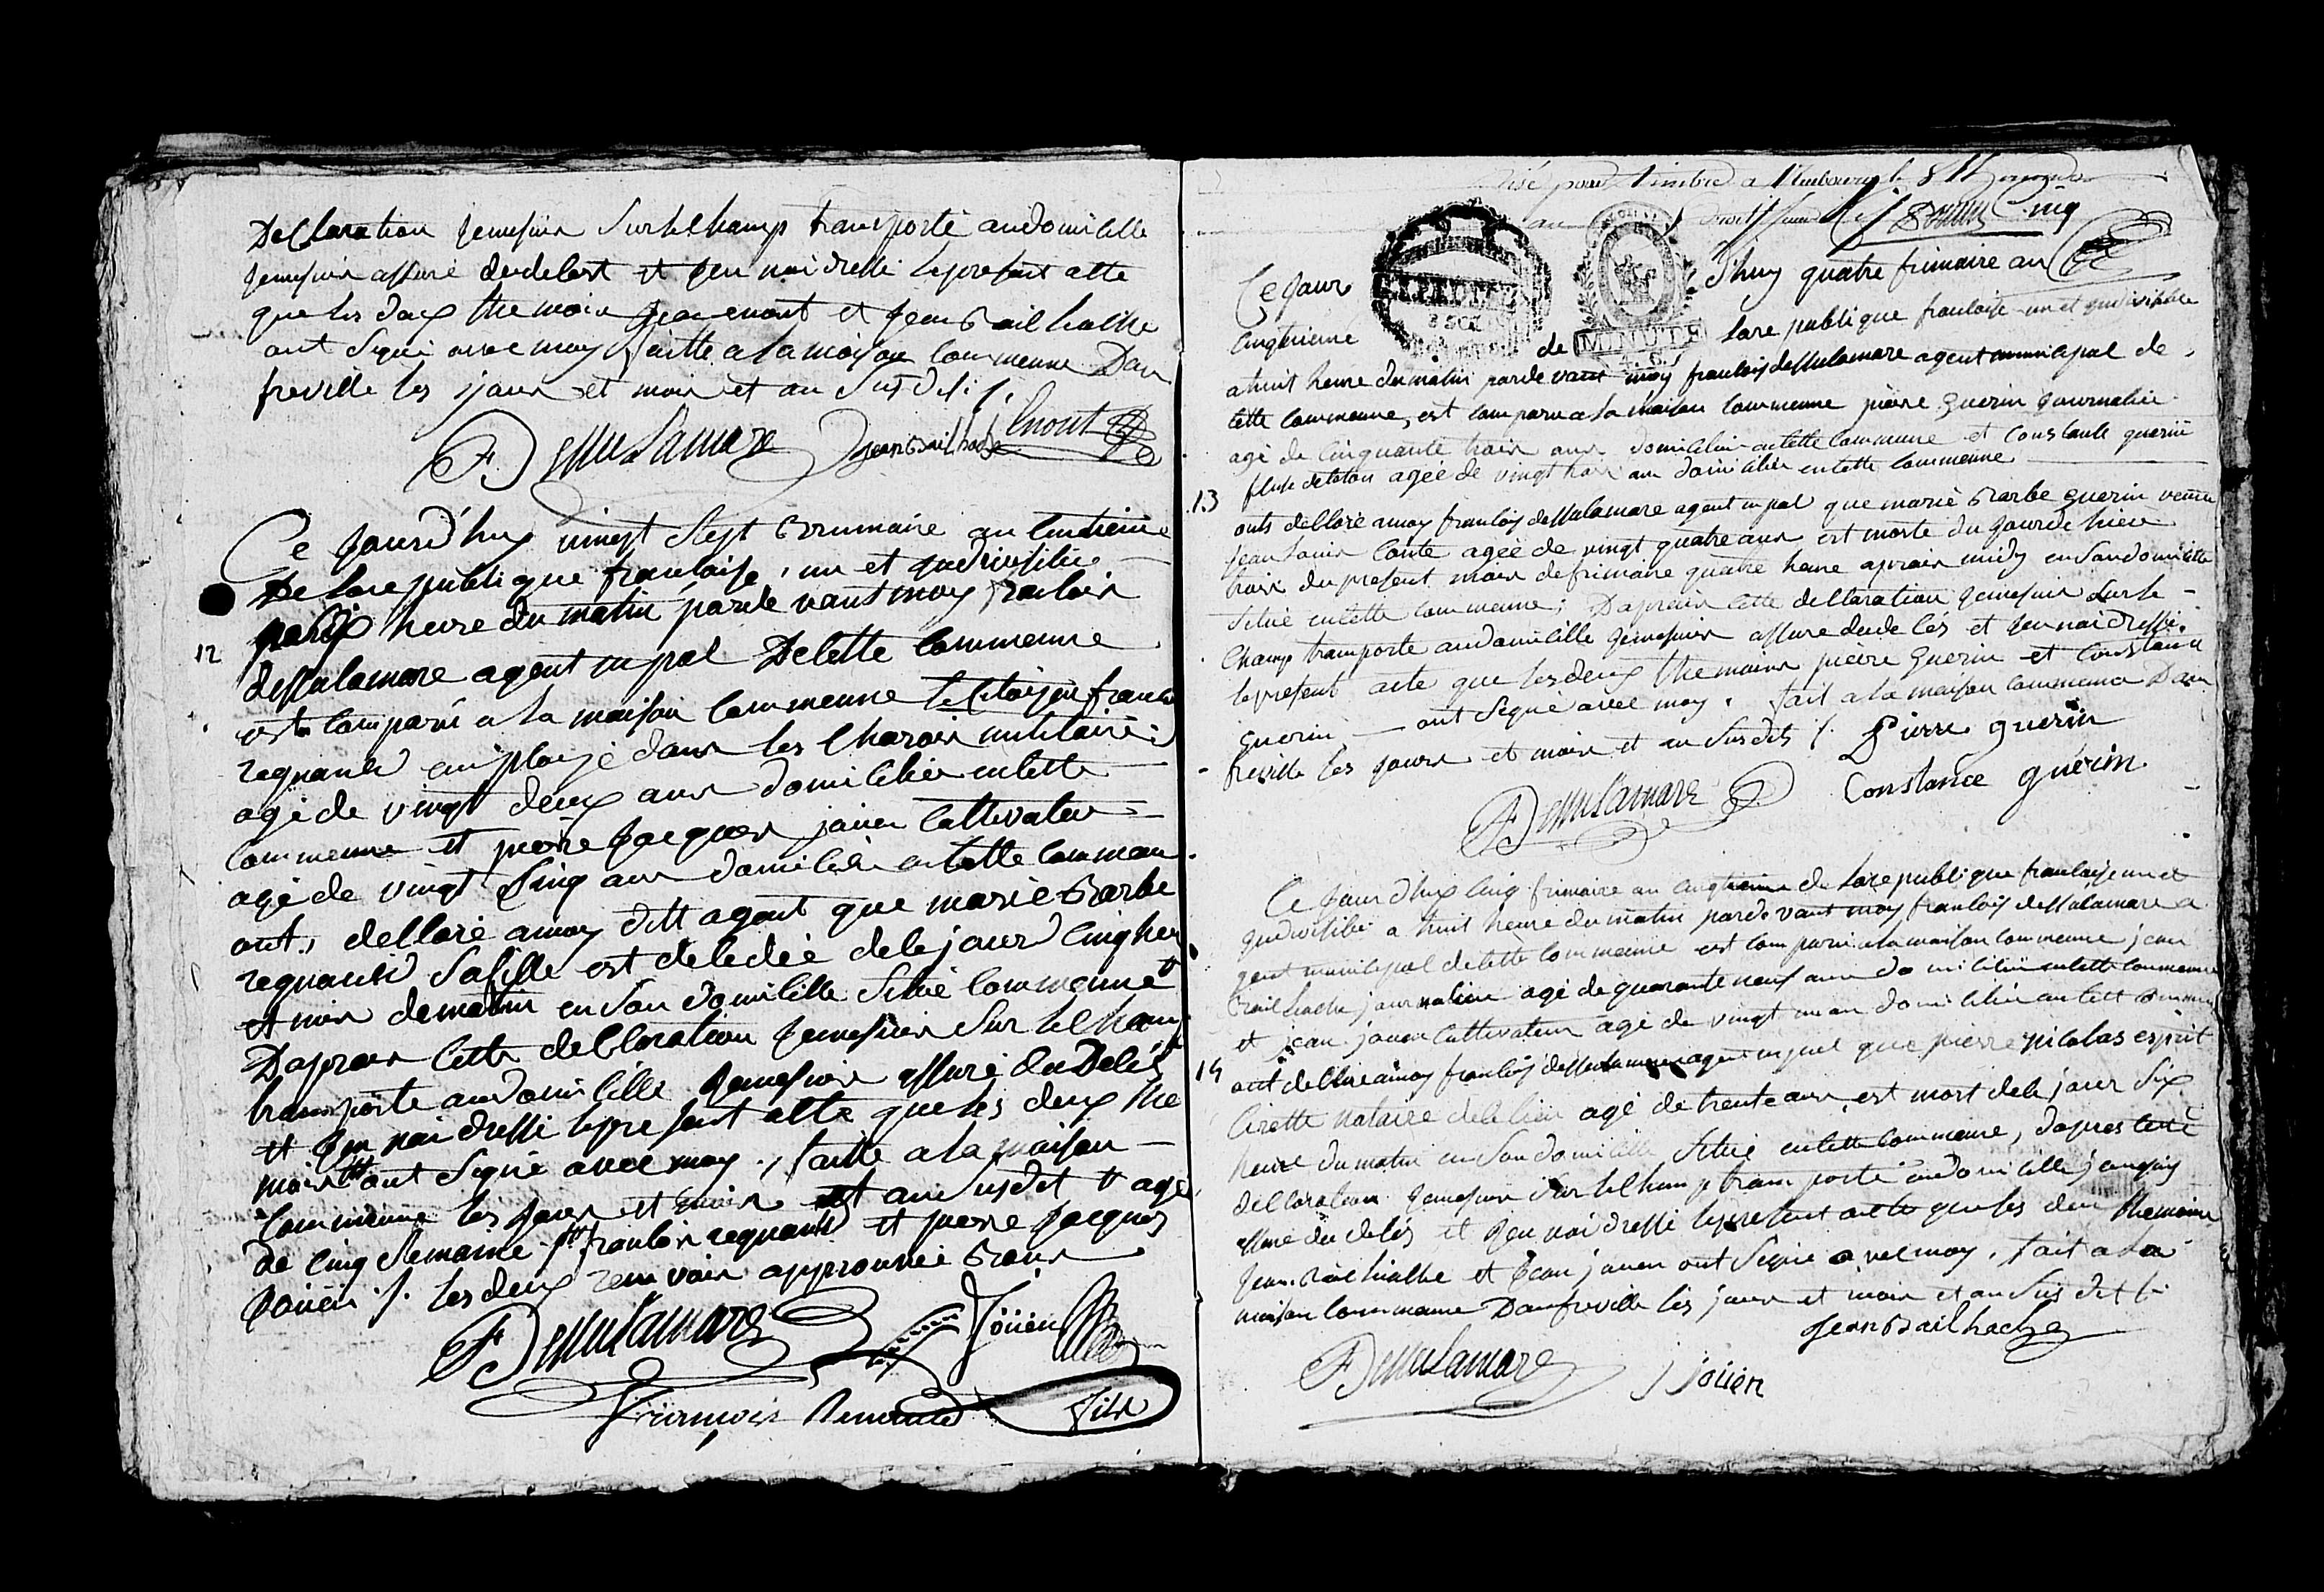 Declaration je me suis sur le champ transporté au domicille
je me suis assuré du delest et j'en nai dressé le present acte
que les deux themoin jean enout et jean Bailhache
ont signé avec moy faitte a la maison commenne Dan
freville les jour et moir et an susdit /.
F Dessulamare jean Bailhache Enout
Ce jourd'huy vingt sept Brumaire an cinctieme
De la republique francaise, un et indivisible
heure du matin parde vant moy francoir
12 dessulamare agent mpal De cette commenne
est comparu a la maison commenne le citoyen francoir
regnauld employé dans les charoir militaire
agé de vingt deux anr domicilier en cette
commenne et pierre jacquer jouen cultivateur
agé de vingt cinq anr domicilié en cette commenn
ont, declaré amoy ditt agent que marie Barbe
regnauld sa fille est decedeé de ce jour cinq heur
et moir de matin en son domicille situé commenne
Daprair cette declaration je me suis sur le champ
transporté au domicille je me suis assuré du Delest
et j'en nai dressé le present acte que les deux the
moin ont signé avec moy, faitte a la maison
commenne les jour et moir et an susdit et agé
De cinq semaine francoir regnauld et pierre jacques
jouen /. les deux renvoir approuvée Bonr
F Dessulamare Jöüen
François Renauld filx
visé pour timbre a le 8
an Cinq
Ce jour d'huy quatre frimaire an
cinqtrieme de la republique francaise un et indivisible
MINUTE
a huit heure du matin parde vant moy francois dessulamare agent municipal de
cette commenne, est comparu a la maison commenne pierre guerin journalier
agé de cinquante troir anr domicilier en cette commune et constante guerin
agée de vingt troir anr domicilier en cette commenne
13 onts declaré amoy francois dessulamare agent mpal que marie Barbe guerin veuve
jean louir Conte agée de vingt quatre anr est morte du jour de hiere
troir du present moir de frimaire quatre heure aprair midy en son domicille
situé en cette commenne; Daprair cette declaration je me suis sur le
champ transporté au domicille je me suis assuré du deces et j'en nai dressé
le present acte que les deux themoinr pierre guerin et constance
guerin ont signé avec moy. fait a la maison commenne Dan
freville les jours et moir et an susdits /. Pierre guerin
F Dessulamare Constance guérin
Ce jourd'huy cinq frimaire an cinqtrieme de la republique francaise un et
indivisible a huit heure du matin parde vant moy francois dessulamare a
gent municipal de cette commenne est comparu a la maison commenne jean
Bailhache journalier agé de quarante neuf anr domicilié en cette commenne
et jean jouen cultivateur agé de vingt un an domicilié en cett commenne
14 ont declaré amoy francois dessulamare agent mpal que pierre nicolas esprit
Cirette notaire de ce lieu agé de trente anr, est mort de ce jour six
heure du matin en son domicille situé en cette commenne, dapres cette
declaration je me suis sur le champ transporté au domicille je me suis
assuré du deces et j'en nai dressé le present acte que les deux themoinr
jean Bailhache et jean jouen ont signé avec moy, fait a la
maison commenne Danfreville les jour et moir et an sus dit /.
jean Bailhache
F Dessulamare j jöüen